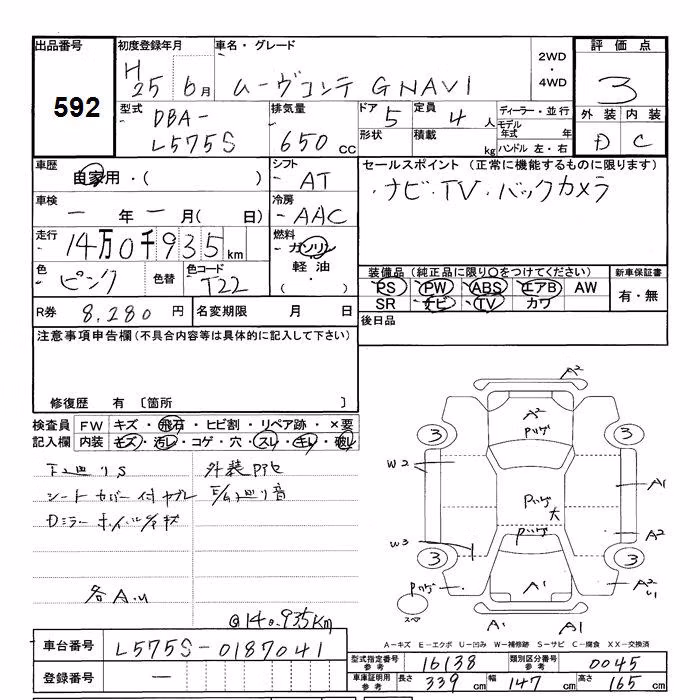 出品番号 初度登録年月 車名・グレード 2WD・4WD 評価点
592 H25 6月 ムーヴコンテ GNAVI 3
型式 排気量 ドア 定員 ディーラー・並行 外装 内装
DBA-L575S 650cc 5 4人 モデル年式 年 D C
形状 積載 kg ハンドル 左・右
車歴 シフト セールスポイント (正常に機能するものに限ります)
自家用・( ) AT ・ナビ・TV・バックカメラ
車検 冷房
一年一月( 日) AAC
走行 燃料
14万0千935km ガソリン
軽油
色 色替 色コード 装備品 (純正品に限り○をつけてください) 新車保証書
ピンク T22 PS PW ABS エアB AW 有・無
SR ナビ TV カワ
R券 8,280円 名変期限 月 日 後日品
注意事項申告欄(不具合内容等は具体的に記入して下さい)
修復歴 有 〔箇所 〕
検査員 FW キズ・飛石・ヒビ割・リペア跡・×要
記入欄 内装 キズ・汚レ・コゲ・穴・スレ・キレ・破レ
下廻りS
シートカバー付 ヤブレ
Dミラー ホイルC/キズ
各A.U
@140,935Km
A2
A2
3 3
W2
A1
大
A2
W3
3 3
A2
A1
スペア
A1 A1
A-キズ E-エクボ U-凹み W-補修跡 S-サビ C-腐食 XX-交換済
車台番号 L575S-0187041
型式指定番号 参考 16138 類別区分番号 参考 0045
登録番号 —
車庫証明用 参考 長さ 339cm 幅 147cm 高さ 165cm